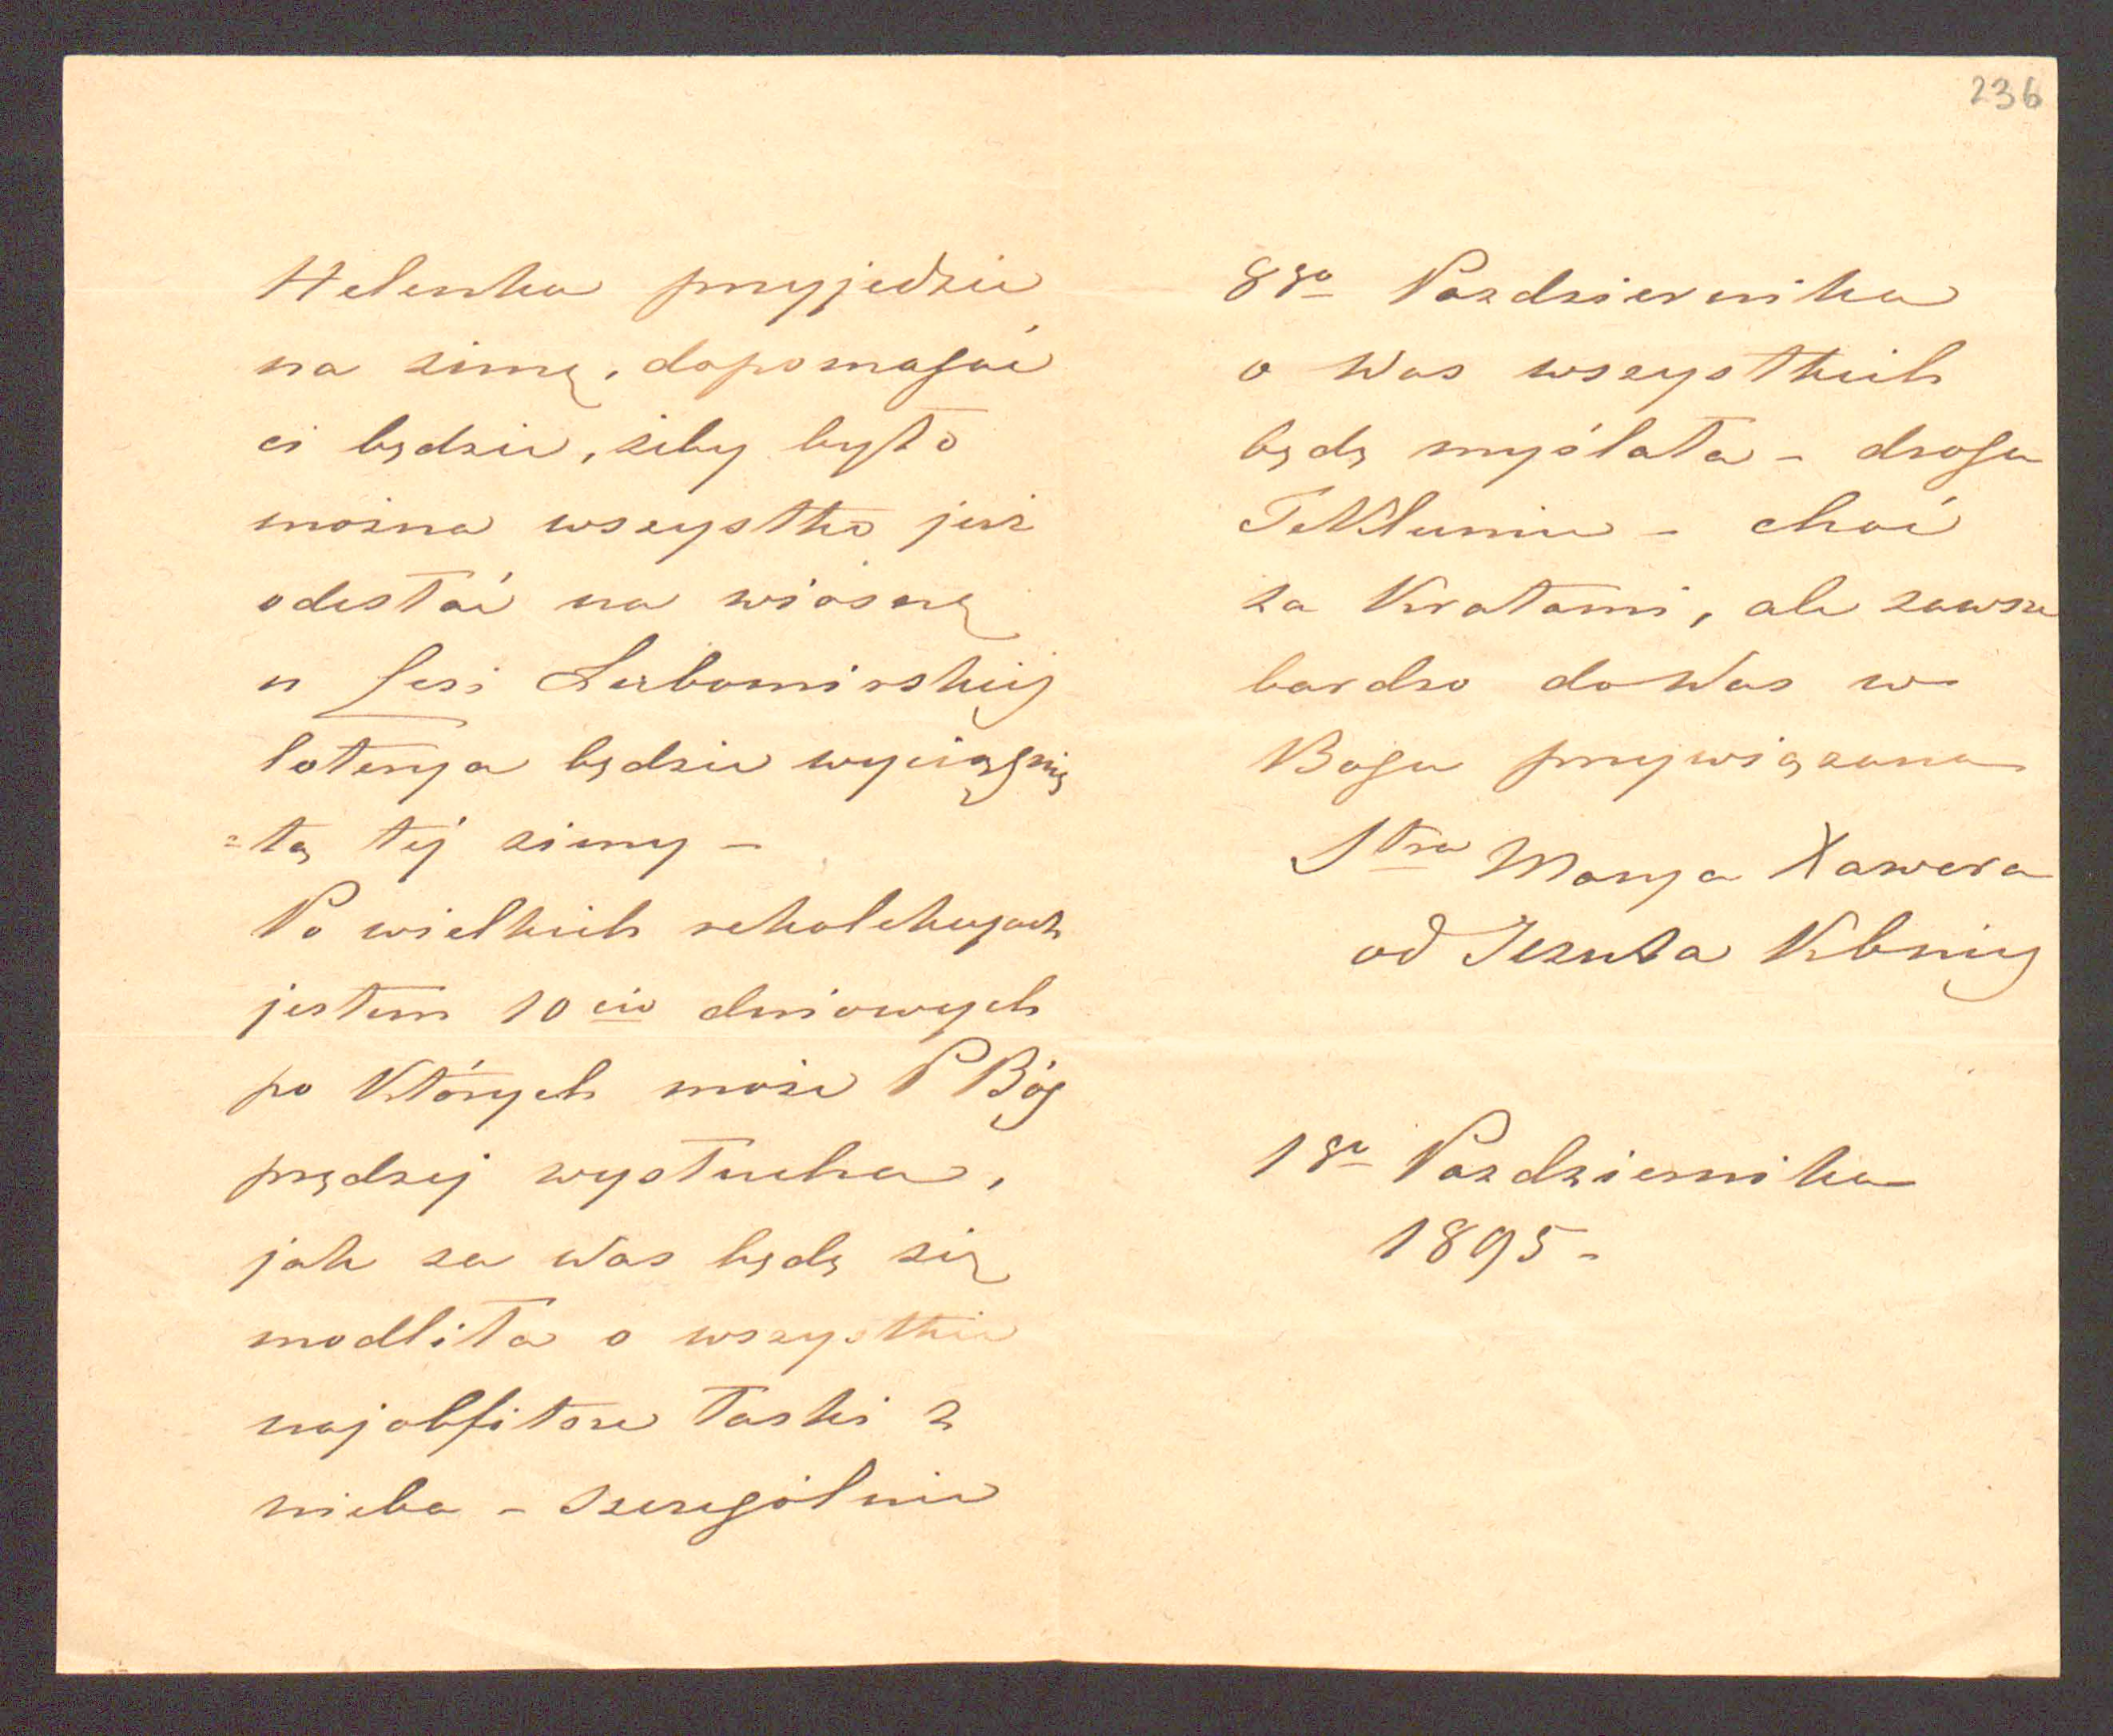 236
Helenka przyjedzie
na zimę, dopomagać
ci będzie, żeby było
można wszystko już
odesłać na wiosnę
u Lesi Lubomirskiej
loterya będzie wyciągnię
=tą téj zimy –
Po wielkich rekolekcyach
jestem 10cio dniowych
po których może P Bóg
prędzej wysłucha,
jak za Was będę się
modliła o wszystkie
najobfitsze łaski z
nieba – szczególnie
8go Pazdziernika
o Was wszystkich
będę myślała – droga
Tekluniu – choć
za kratami, ale zawsze
bardzo do Was w
Bogu przywiązana
Stra Marya Xawera
od Jezusa
1go Pazdziernika
1895 –